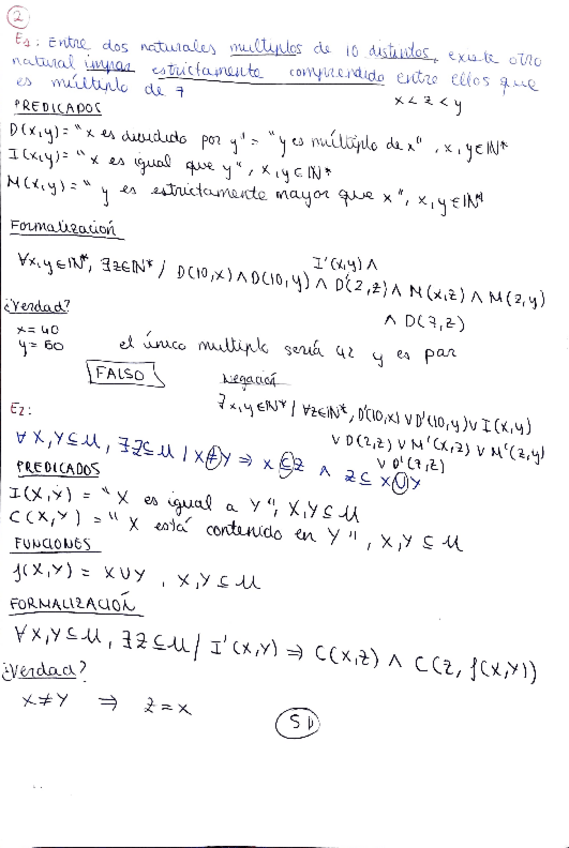 2
E1: Entre dos naturales multiplos de 10 distintos, existe otro
natural impar estrictamente comprendido entre ellos que
es múltiplo de 7
x < z < y
PREDICADOS
D(x,y)= "x es dividido por y" = "y es múltiplo de x", x,y∈IN*
I(x,y)= "x es igual que y", x,y∈IN*
M(x,y)= "y es estrictamente mayor que x", x,y∈IN*
Formalización
I'(x,y) ∧
∀x,y∈IN*, ∃z∈IN* / D(10,x) ∧ D(10,y) ∧ D'(2,z) ∧ M(x,z) ∧ M(z,y)
∧ D(7,z)
¿Verdad?
x= 40
y= 50
el único multiplo sería 42 y es par
FALSO
Negación
∃x,y∈IN* / ∀z∈IN*, D'(10,x) ∨ D'(10,y) ∨ I(x,y)
∨ D(2,z) ∨ M'(x,z) ∨ M'(z,y)
∨ D'(7,z)
E2:
∀X,Y⊆U, ∃Z⊆U / X≠Y ⇒ X⊆Z ∧ Z⊆X∪Y
PREDICADOS
I(X,Y) = "X es igual a Y", X,Y⊆U
C(X,Y) = "X está contenido en Y", X,Y⊆U
FUNCIONES
f(X,Y) = X∪Y, X,Y⊆U
FORMALIZACIÓN
∀X,Y⊆U, ∃Z⊆U / I'(X,Y) ⇒ C(X,Z) ∧ C(Z, f(X,Y))
¿Verdad?
X≠Y ⇒ Z=X
SI